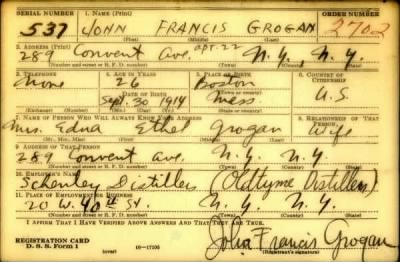 SERIAL NUMBER 1. NAME (Print) ORDER NUMBER
537 JOHN FRANCIS GROGAN 2702
(First) (Middle) (Last)
2. ADDRESS (Print) apt. 22
289 Convent Ave. N.Y. N.Y.
(Number and street or R. F. D. number) (Town) (County) (State)
3. TELEPHONE 4. AGE IN YEARS 5. PLACE OF BIRTH 6. COUNTRY OF CITIZENSHIP
None 26 Boston
DATE OF BIRTH (Town or county)
Sept. 30 1914 Mass. U.S.
(Exchange) (Number) (Mo.) (Day) (Yr.) (State or country)
7. NAME OF PERSON WHO WILL ALWAYS KNOW YOUR ADDRESS 8. RELATIONSHIP OF THAT PERSON
Mrs. Edna Ethel Grogan Wife
(Mr., Mrs., Miss) (First) (Middle) (Last)
9. ADDRESS OF THAT PERSON
289 Convent ave. N.Y. N.Y.
(Number and street or R. F. D. number) (Town) (County) (State)
10. EMPLOYER'S NAME
Schenley Distillers (Oldtyme Distillers)
11. PLACE OF EMPLOYMENT OR BUSINESS
20 W. 40th St. N.Y. N.Y.
(Number and street or R. F. D. number) (Town) (County) (State)
I AFFIRM THAT I HAVE VERIFIED ABOVE ANSWERS AND THAT THEY ARE TRUE.
REGISTRATION CARD
D. S. S. Form 1 (over) 16—17105 John Francis Grogan
(Registrant's signature)